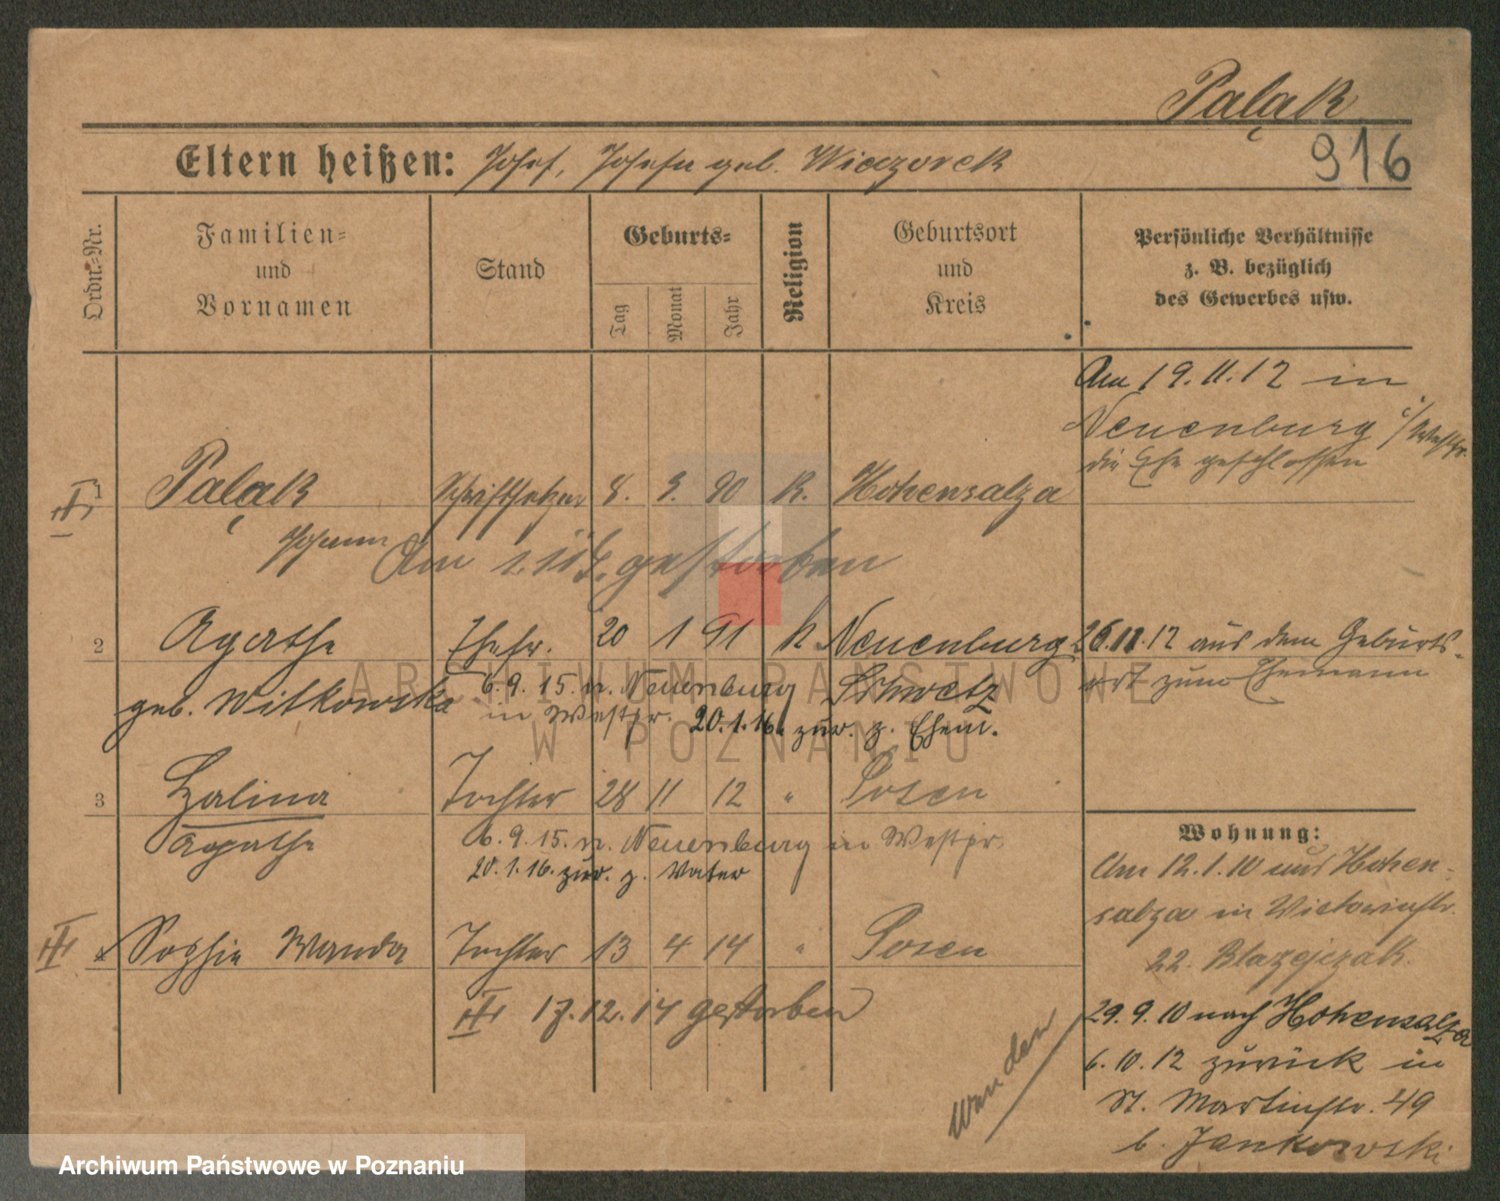 Palak
916
Eltern heißen: Josef, Josefa geb. Wieczorek
Ordn.-Nr.
Familien-
und
Vornamen
Stand
Geburts-
Tag
Monat
Jahr
Religion
Geburtsort
und
Kreis
Persönliche Verhältnisse
z. B. bezüglich
des Gewerbes usw.
Am 19.11.12 in
Neuenburg i/Westpr.
die Ehe geschlossen
1 Palak Schriftsetzer 8. 3. 90 K. Hohensalza
Johann
Am gestorben
2 Agathe Ehefr. 20 1 91 K Neuenburg
26.11.12 aus dem Geburts-
ort zum Ehemann
geb. Witkowska
6.9.15. n. Neuenburg Schwetz
in Westpr. 20.1.16. zur. z. Ehem.
3 Halina Tochter 28 11 12 " Posen
Agathe
6.9.15. n. Neuenburg in Westpr.
20.1.16. zur. z. Vater
Sophie Wanda Tochter 13 4 14 " Posen
17.12.14 gestorben
Wohnung:
Am 12.1.10 aus Hohen-
salza in Victoriastr.
22. Blazejczak.
29.9.10 nach Hohensalza
6.10.12 zurück in
St. Martinstr. 49
b. Jankowski
ARCHIWUM PAŃSTWOWE
W POZNANIU
Archiwum Państwowe w Poznaniu